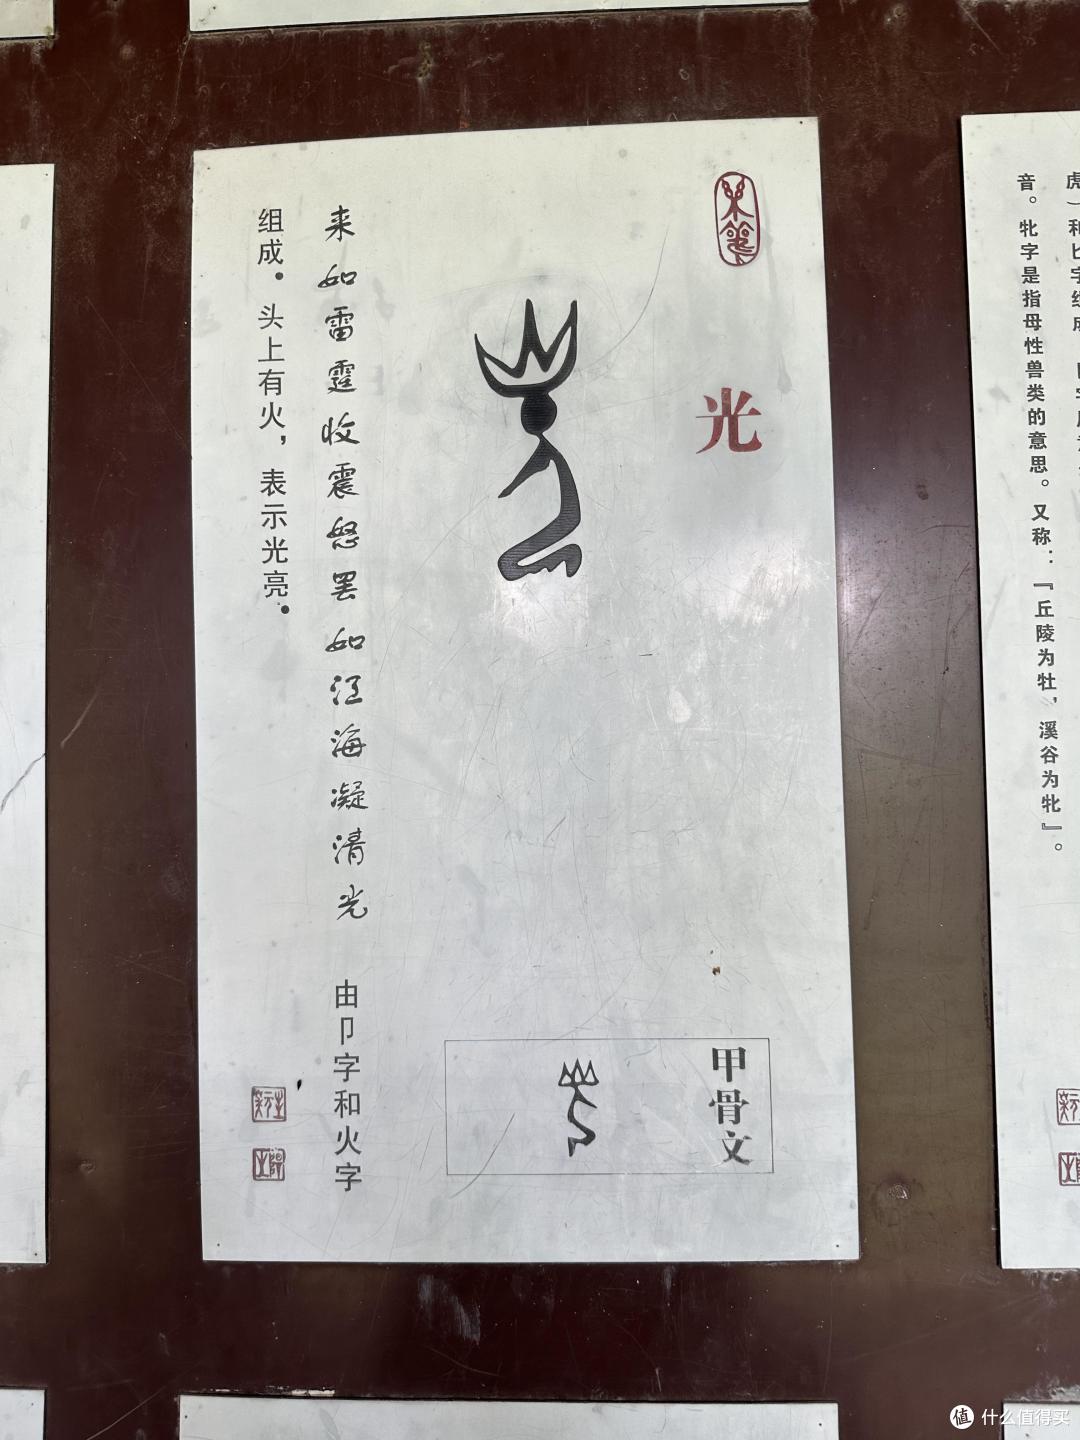 光
来如雷霆收震怒罢如江海凝清光 由卩字和火字
组成。头上有火，表示光亮。
甲骨文
音。牝字是指母性兽类的意思。又称：『丘陵为牡，溪谷为牝』。
值 什么值得买